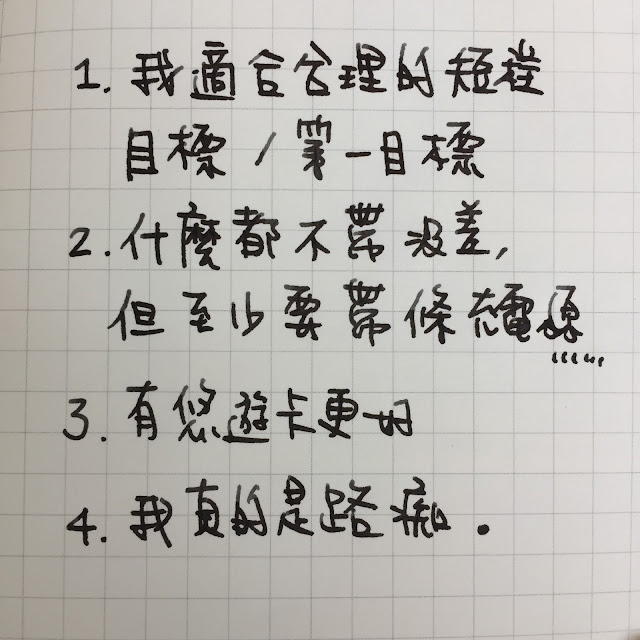 1. 我適合合理的短程
目標 / 第一目標
2. 什麼都不帶沒差,
但至少要帶條充電線
......
3. 有悠遊卡更好
4. 我真的是路痴.